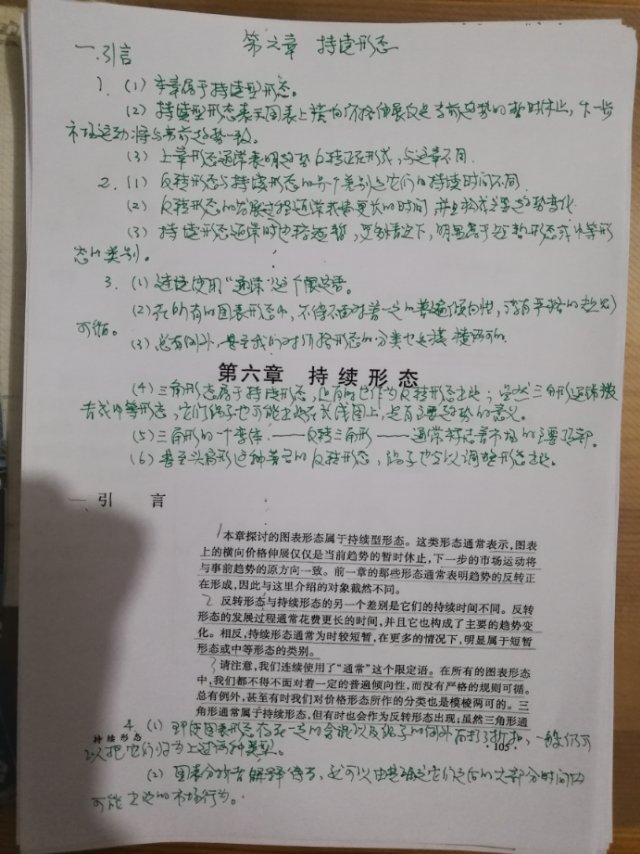 第六章 持续形态
一.引言
1.(1) 本章属于持续型形态。
(2) 持续型形态表示图表上横向价格伸展仅是当前趋势的暂时休止,下一步
市场运动将与事前趋势一致。
(3) 上章形态通常表明趋势反转正在形成,与这章不同.
2.(1) 反转形态与持续形态的另一个差别是它们的持续时间不同.
(2) 反转形态的发展过程通常花费更长的时间,并且构成主要趋势变化.
(3) 持续形态通常时为较短暂,更多情况下,明显属于短暂形态或中等形
态的类别。
3.(1) 连续使用“通常”这个限定语。
(2) 在所有的图表形态中,不得不面对着一定的普遍倾向性,没有严格的规则
可循。
(3) 总有例外,甚至我们对价格形态的分类也是模棱两可的.
第六章 持续形态
(4) 三角形态属于持续形态,但有时也作为反转形态出现;虽然三角形通常被
看成中等形态,它们偶尔也可能出现在长线图上,具有主要趋势的意义。
(5) 三角形的一个变体——反转三角形——通常标志着市场的主要顶部.
(6) 甚至头肩形这种著名的反转形态,偶尔也会以调整形态出现.
一 引 言
本章探讨的图表形态属于持续型形态。这类形态通常表示,图表
上的横向价格伸展仅仅是当前趋势的暂时休止,下一步的市场运动将
与事前趋势的原方向一致。前一章的那些形态通常表明趋势的反转正
在形成,因此与这里介绍的对象截然不同。
2 反转形态与持续形态的另一个差别是它们的持续时间不同。反转
形态的发展过程通常花费更长的时间,并且它也构成了主要的趋势变
化。相反,持续形态通常为时较短暂,在更多的情况下,明显属于短暂
形态或中等形态的类别。
3 请注意,我们连续使用了“通常”这个限定语。在所有的图表形态
中,我们都不得不面对着一定的普遍倾向性,而没有严格的规则可循。
总有例外,甚至有时我们对价格形态所作的分类也是模棱两可的。三
角形通常属于持续形态,但有时也会作为反转形态出现;虽然三角形通
4.(1) 即使图表形态在一定的含混以及偶尔的例外而打了折扣,一般仍可
持续形态 ·105·
以把它们归为上述两种类型。
(2) 图表分析者解释得当,就可以由其确定它们之后的大部分时间内
可能出现的市场行为。